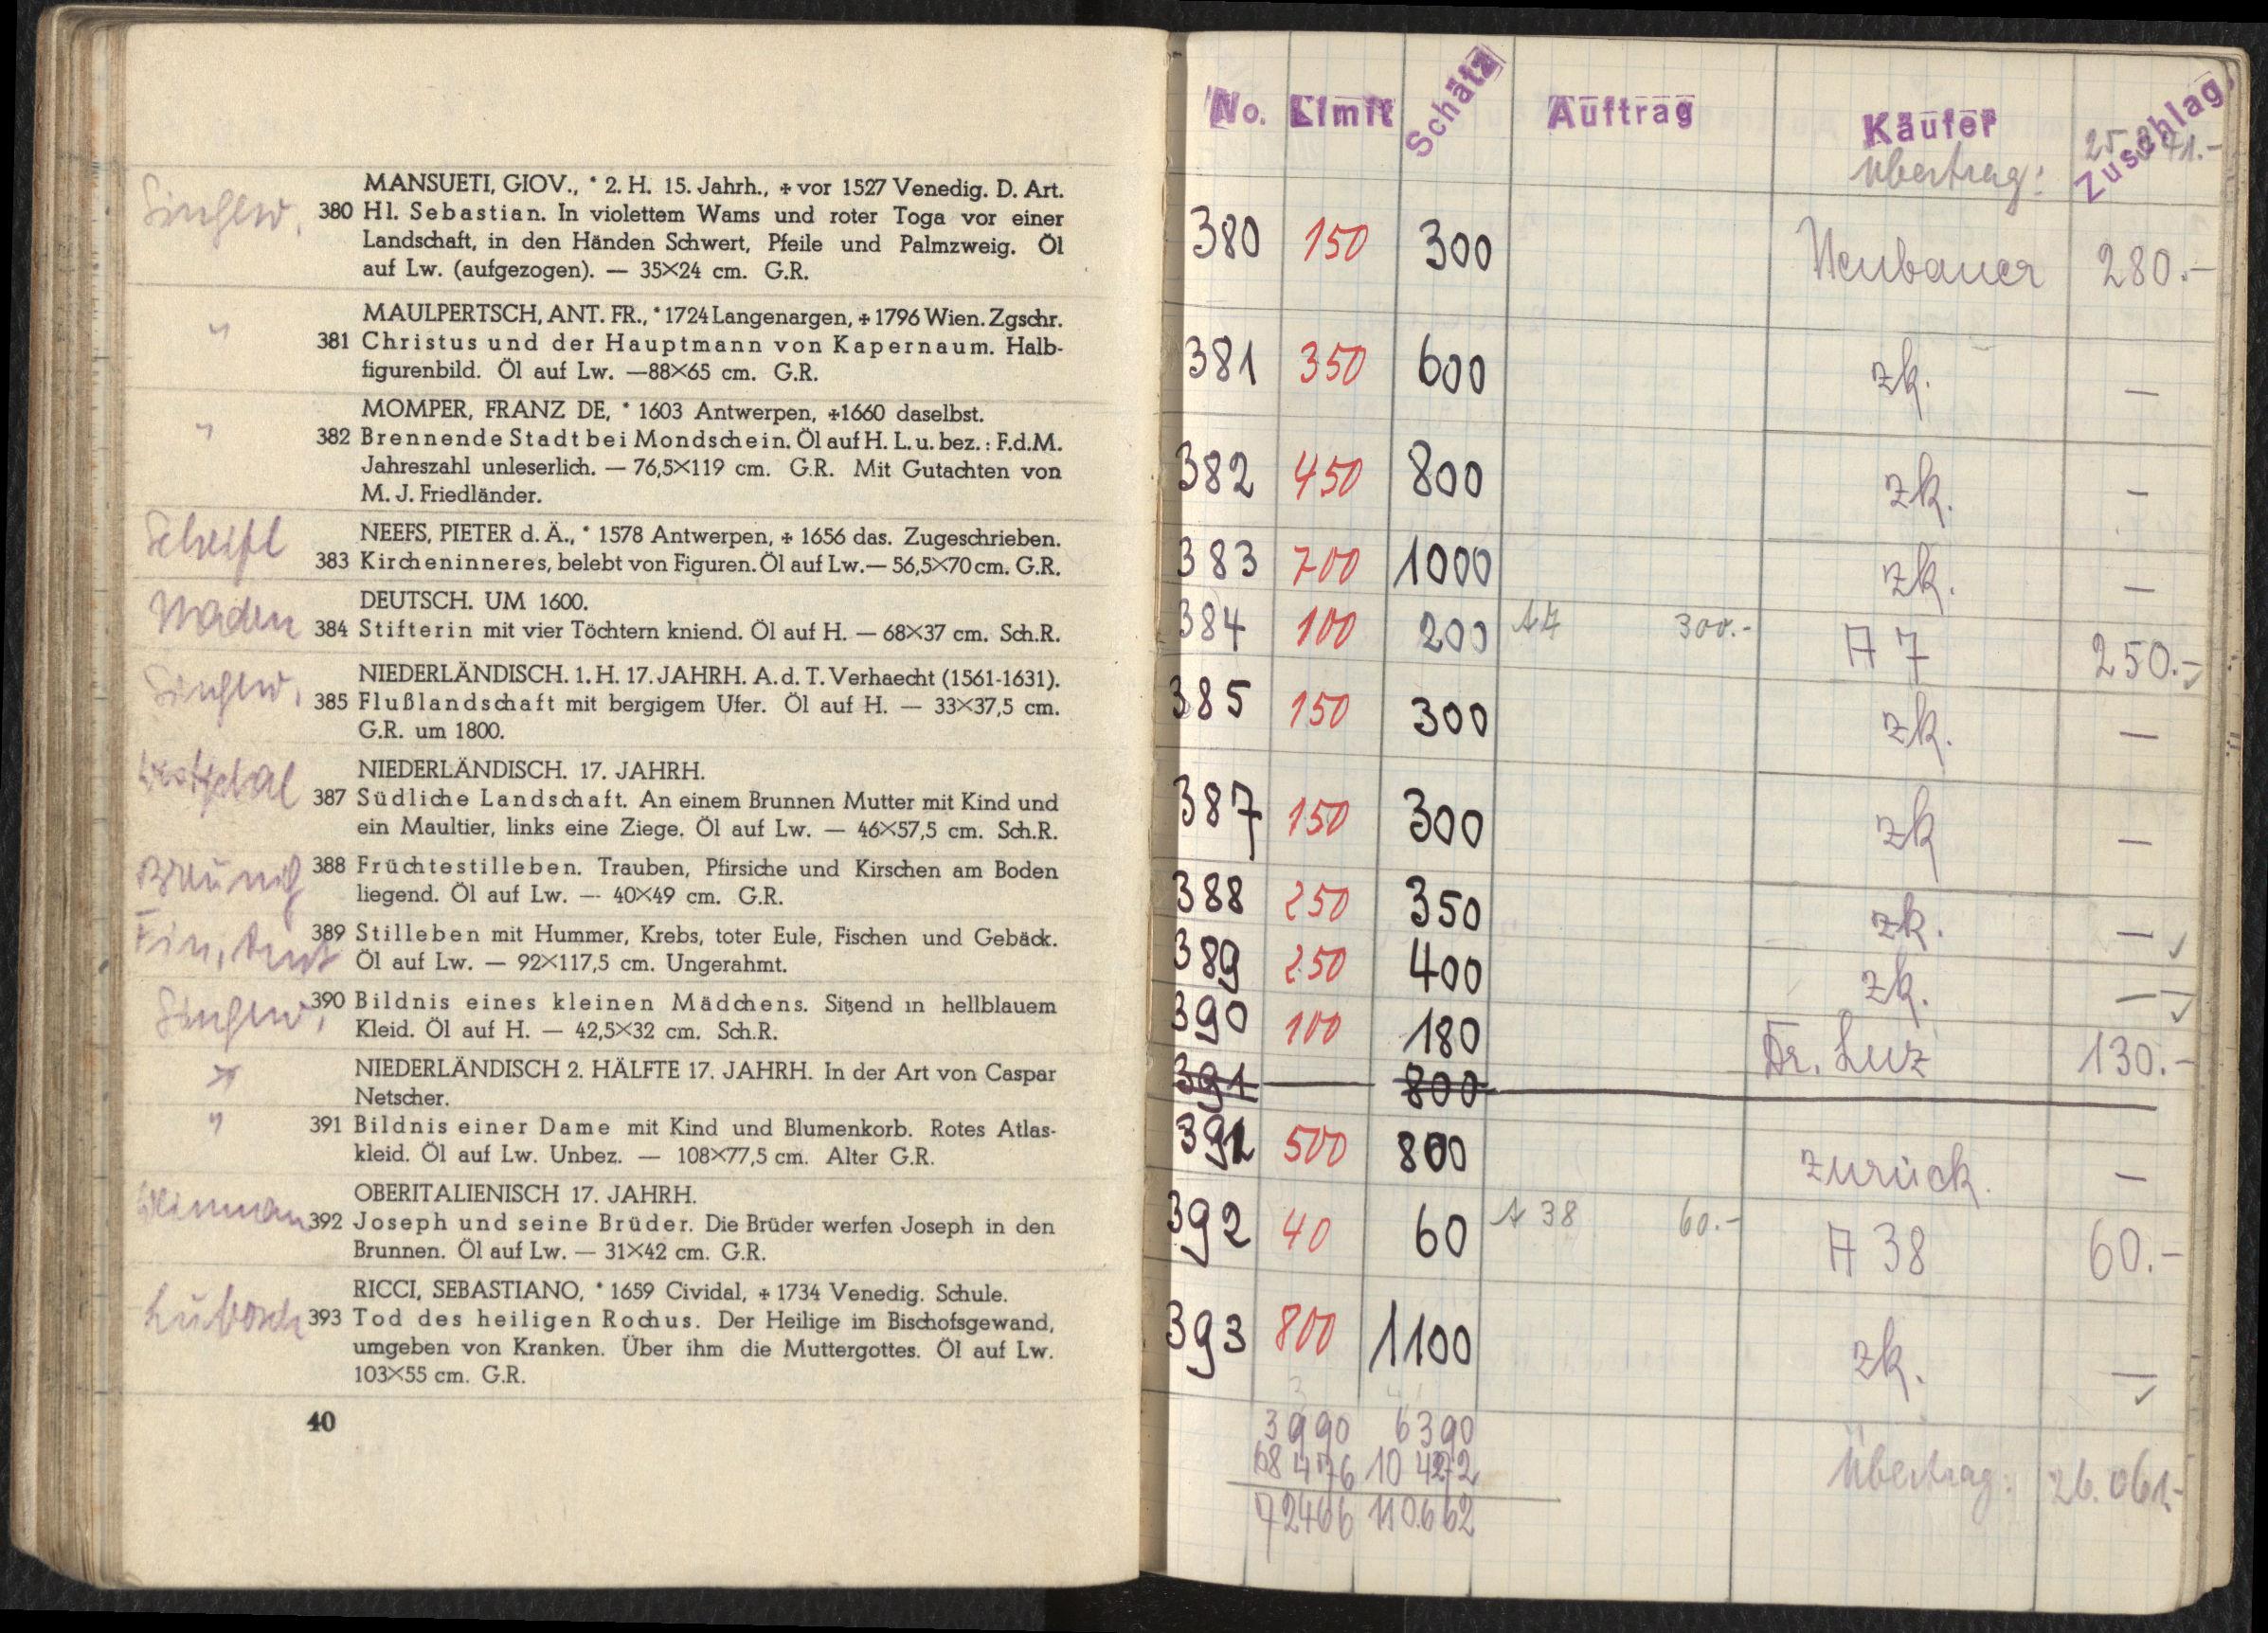 MANSUETI, GIOV., * 2. H. 15. Jahrh., + vor 1527 Venedig. D. Art.
380 Hl. Sebastian. In violettem Wams und roter Toga vor einer
Landschaft, in den Händen Schwert, Pfeile und Palmzweig. Öl
auf Lw. (aufgezogen). — 35×24 cm. G.R.
"
MAULPERTSCH, ANT. FR., * 1724 Langenargen, + 1796 Wien. Zgschr.
381 Christus und der Hauptmann von Kapernaum. Halb-
figurenbild. Öl auf Lw. —88×65 cm. G.R.
"
MOMPER, FRANZ DE, * 1603 Antwerpen, +1660 daselbst.
382 Brennende Stadt bei Mondschein. Öl auf H. L. u. bez.: F.d.M.
Jahreszahl unleserlich. — 76,5×119 cm. G.R. Mit Gutachten von
M. J. Friedländer.
NEEFS, PIETER d. Ä., * 1578 Antwerpen, + 1656 das. Zugeschrieben.
383 Kircheninneres, belebt von Figuren. Öl auf Lw.— 56,5×70 cm. G.R.
DEUTSCH. UM 1600.
384 Stifterin mit vier Töchtern kniend. Öl auf H. — 68×37 cm. Sch.R.
NIEDERLÄNDISCH. 1. H. 17. JAHRH. A. d. T. Verhaecht (1561-1631).
385 Flußlandschaft mit bergigem Ufer. Öl auf H. — 33×37,5 cm.
G.R. um 1800.
NIEDERLÄNDISCH. 17. JAHRH.
387 Südliche Landschaft. An einem Brunnen Mutter mit Kind und
ein Maultier, links eine Ziege. Öl auf Lw. — 46×57,5 cm. Sch.R.
388 Früchtestilleben. Trauben, Pfirsiche und Kirschen am Boden
liegend. Öl auf Lw. — 40×49 cm. G.R.
389 Stilleben mit Hummer, Krebs, toter Eule, Fischen und Gebäck.
Öl auf Lw. — 92×117,5 cm. Ungerahmt.
390 Bildnis eines kleinen Mädchens. Sitzend in hellblauem
Kleid. Öl auf H. — 42,5×32 cm. Sch.R.
"
NIEDERLÄNDISCH 2. HÄLFTE 17. JAHRH. In der Art von Caspar
Netscher.
"
391 Bildnis einer Dame mit Kind und Blumenkorb. Rotes Atlas-
kleid. Öl auf Lw. Unbez. — 108×77,5 cm. Alter G.R.
OBERITALIENISCH 17. JAHRH.
392 Joseph und seine Brüder. Die Brüder werfen Joseph in den
Brunnen. Öl auf Lw. — 31×42 cm. G.R.
RICCI, SEBASTIANO, * 1659 Cividal, + 1734 Venedig. Schule.
393 Tod des heiligen Rochus. Der Heilige im Bischofsgewand,
umgeben von Kranken. Über ihm die Muttergottes. Öl auf Lw.
103×55 cm. G.R.
40
No. Limit Schätz Auftrag Käufer Zuschlag
Übertrag:
380 150 300 Neubauer 280.-
381 350 600 zk. —
382 450 800 zk. —
383 700 1000 zk. —
384 100 200 A 7 300.- A 7 250.-
385 150 300 zk. —
387 150 300 zk —
388 250 350 zk. —
389 250 400 zk. —
390 100 180 Dr. Luz 130.-
391 — 800
391 500 800 zurück. —
392 40 60 A 38 60.- A 38 60.-
393 800 1100 zk. —
3990 6390
68476 104272
72466 110.662
Übertrag: 26.061.-